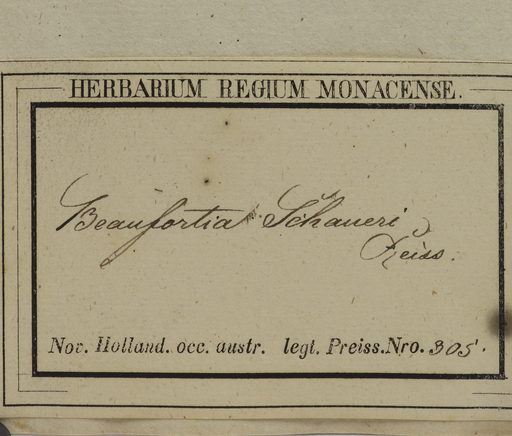 HERBARIUM REGIUM MONACENSE.
Beaufortia Schaueri
Preiss.
Nov. Holland. occ. austr. legt. Preiss. Nro. 305.